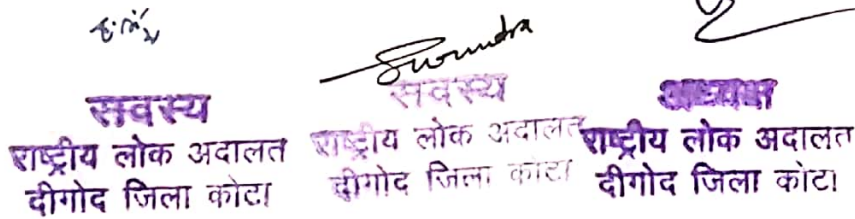 सदस्य
राष्ट्रीय लोक अदालत
दीगोद जिला कोटा
Surendra
सदस्य
राष्ट्रीय लोक अदालत
दीगोद जिला कोटा
अध्यक्ष
राष्ट्रीय लोक अदालत
दीगोद जिला कोटा